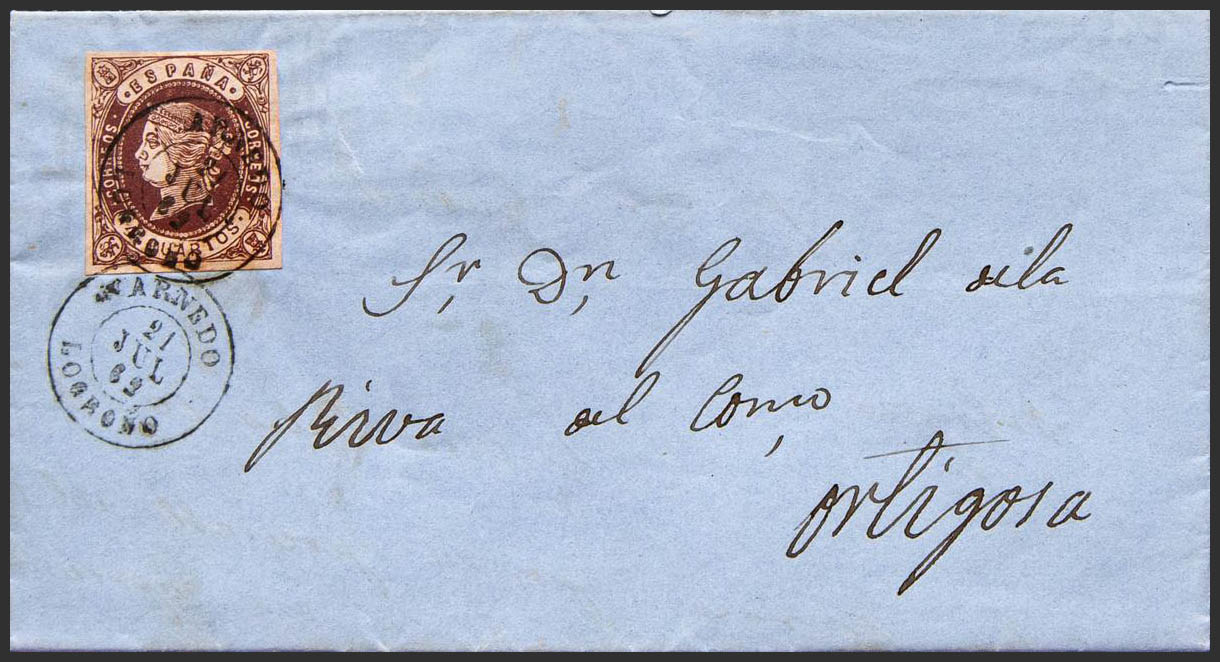 ESPAÑA
CORREOS.
CORREOS.
CUARTOS
ARNEDO
JUL
LOGROÑO
ARNEDO
21
JUL
62
LOGROÑO
Sr, Dn, Gabriel dela
Riva del Comº,
Ortigosa